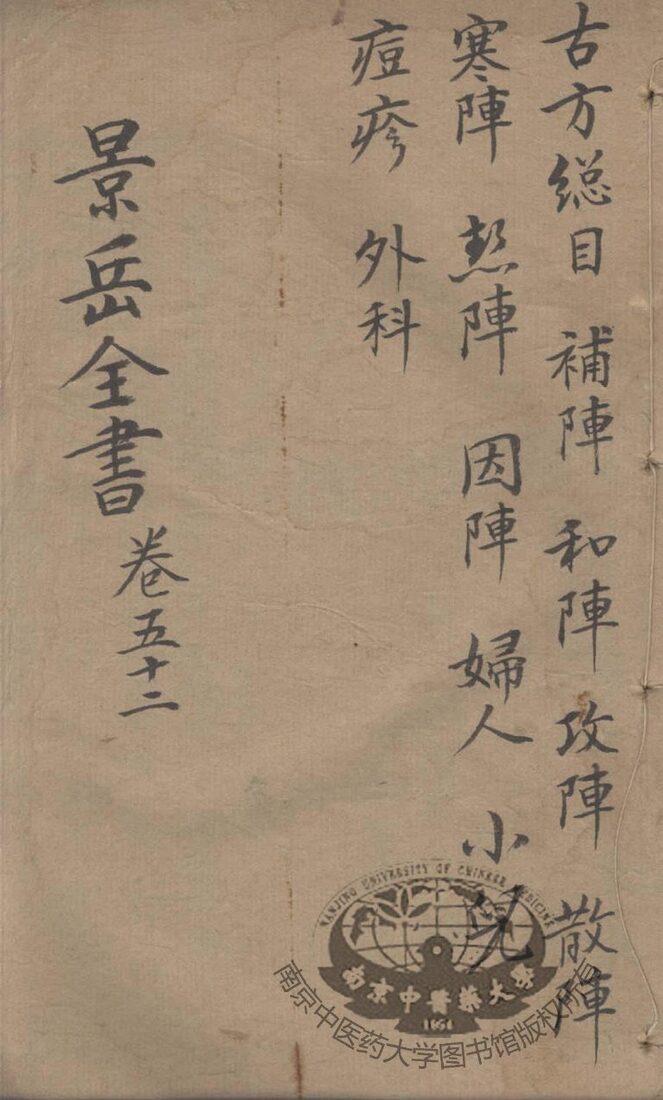 古方総目　補陣　和陣　攻陣　散陣
寒陣　熱陣　因陣　婦人　小児
痘疹　外科
景岳全書　卷五十二
NANJING UNIVERSITY OF CHINESE MEDICINE
南京中醫藥大學
1954
南京中医药大学图书馆版权所有